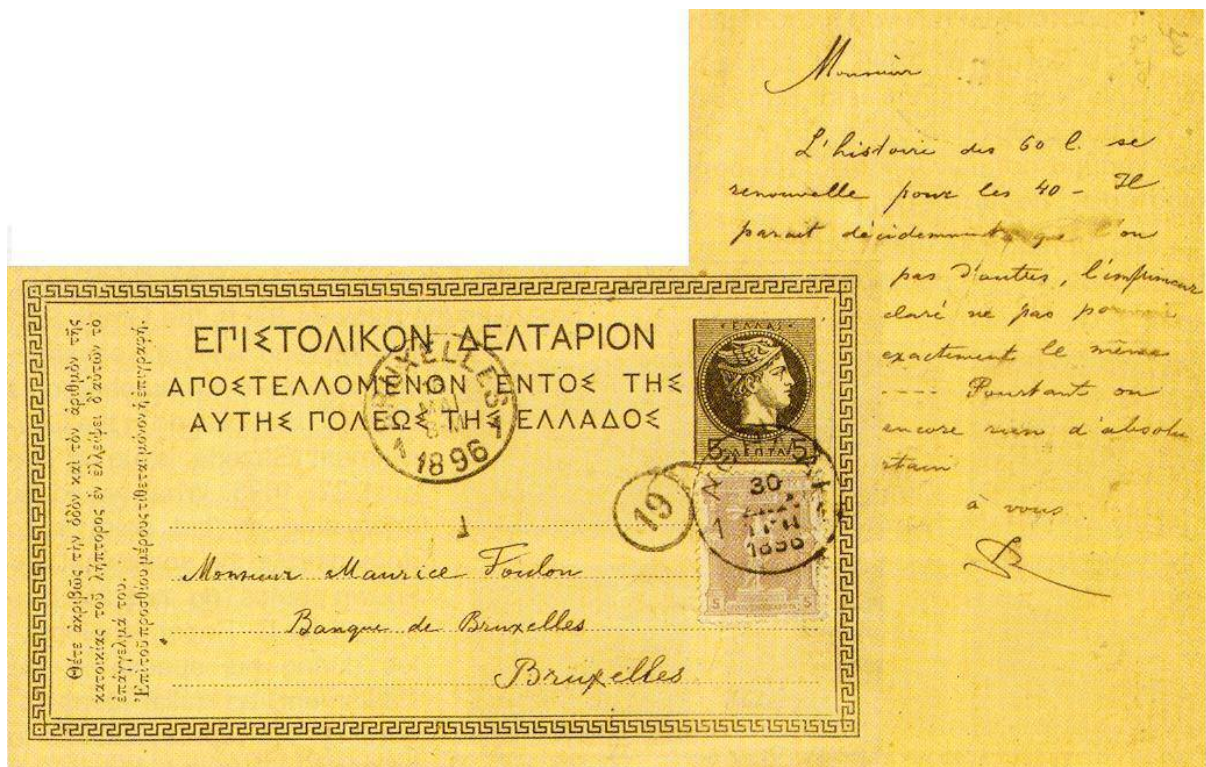 Monsieur
L'histoire des 60 l. se
renouvelle pour les 40 - Il
parait décidemment que l'on
pas d'autres, l'imprimeur
claré ne pas pouvoir
exactement le même
---- Pourtant on
encore rien d'absolu
rtain
à vous
ΕΠΙΣΤΟΛΙΚΟΝ ΔΕΛΤΑΡΙΟΝ
ΑΠΟΣΤΕΛΛΟΜΕΝΟΝ ΕΝΤΟΣ ΤΗΣ
ΑΥΤΗΣ ΠΟΛΕΩΣ ΤΗΣ ΕΛΛΑΔΟΣ
Θέτε ἀκριβῶς τὴν ὁδὸν καὶ τὸν ἀριθμὸν τῆς
κατοικίας τοῦ λήπτορος ἐν ἐλλείψει δ'αὐτῶν τὸ
ἐπάγγελμά του.
Ἐπὶ τοῦ προσθίου μέρους τίθεται μόνον ἡ ἐπιγραφή.
ΕΛΛΑΣ
5 ΛΕΠΤΑ 5
BRUXELLES
1
1896
19
30
1
1896
5 5
Monsieur Maurice Foulon
Banque de Bruxelles
Bruxelles